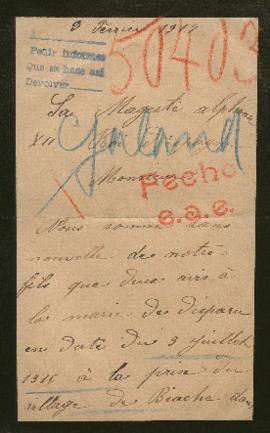 9 Fevrier 1917
50403
Pedir informes
Que se hace así
Devolver
Sa Magesté alphonse
XII Roi
Galand
Monsieur
Fecho
e.a.e.
Nous sommes sans
nouvelle de notre
fils que deux avis à
la mairie de disparu
en date du 3 juillet
1916 à la prise du
village de Biache dans